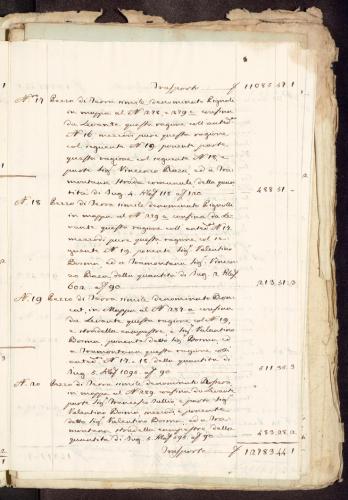 8
Trasporto f 11085.47.1
N. 17 Pezzo di Terra simile denominato Brignoli
in mappa al N. 238 = 239 e confina
da Levante questa ragione coll anted.
N. 16 mezzodì pure questa ragione
col seguente N. 19, ponente parte
questa ragione col seguente N. 18, e
parte Sig. Vincenzo Baza, ed a Tra-
montana Strada comunale della quan-
tità di Jug. 4. Klaf. 118 a f 120 488.51 -
N. 18 Pezzo di Terra simile denominato Brignoli
in mappa al N. 239 e confina da Le-
vante questa ragione coll anted. N. 17.
mezzodì pure questa ragione col se-
quente N. 19, ponente Sig. Valentino
Borma ed a Tramontana Sig. Vincen-
zo Baza, della quantità di Jug. 2 Klaf.
602. a f 90 213.51.2
N. 19 Pezzo di Terra simile denominato
in Mappa al N. 237 e confina
da Levante questa ragione col N. 19,
e stradella campestre, e Sig. Valentino
Borma, ponente detto Sig. Borma, ed
a Tramontana questa ragione coll
anted. N. 17 = 18 della quantità di
Jug. 5. Klaf. 1095. a f 90 511.35.3
N. 20 Pezzo di Terra simile denominato
in mappa al N. 289 confina da Levante
parte Sig. Francesco Tullio e parte Sig.
Valentino Borma, mezzodì, e ponente
detto Sig. Valentino Borma, ed a Tra-
montana stradella campestre della
quantità di Jug. 5. Klaf. 595. a f 90 483.28.2
Trasporto f 12783.44.1